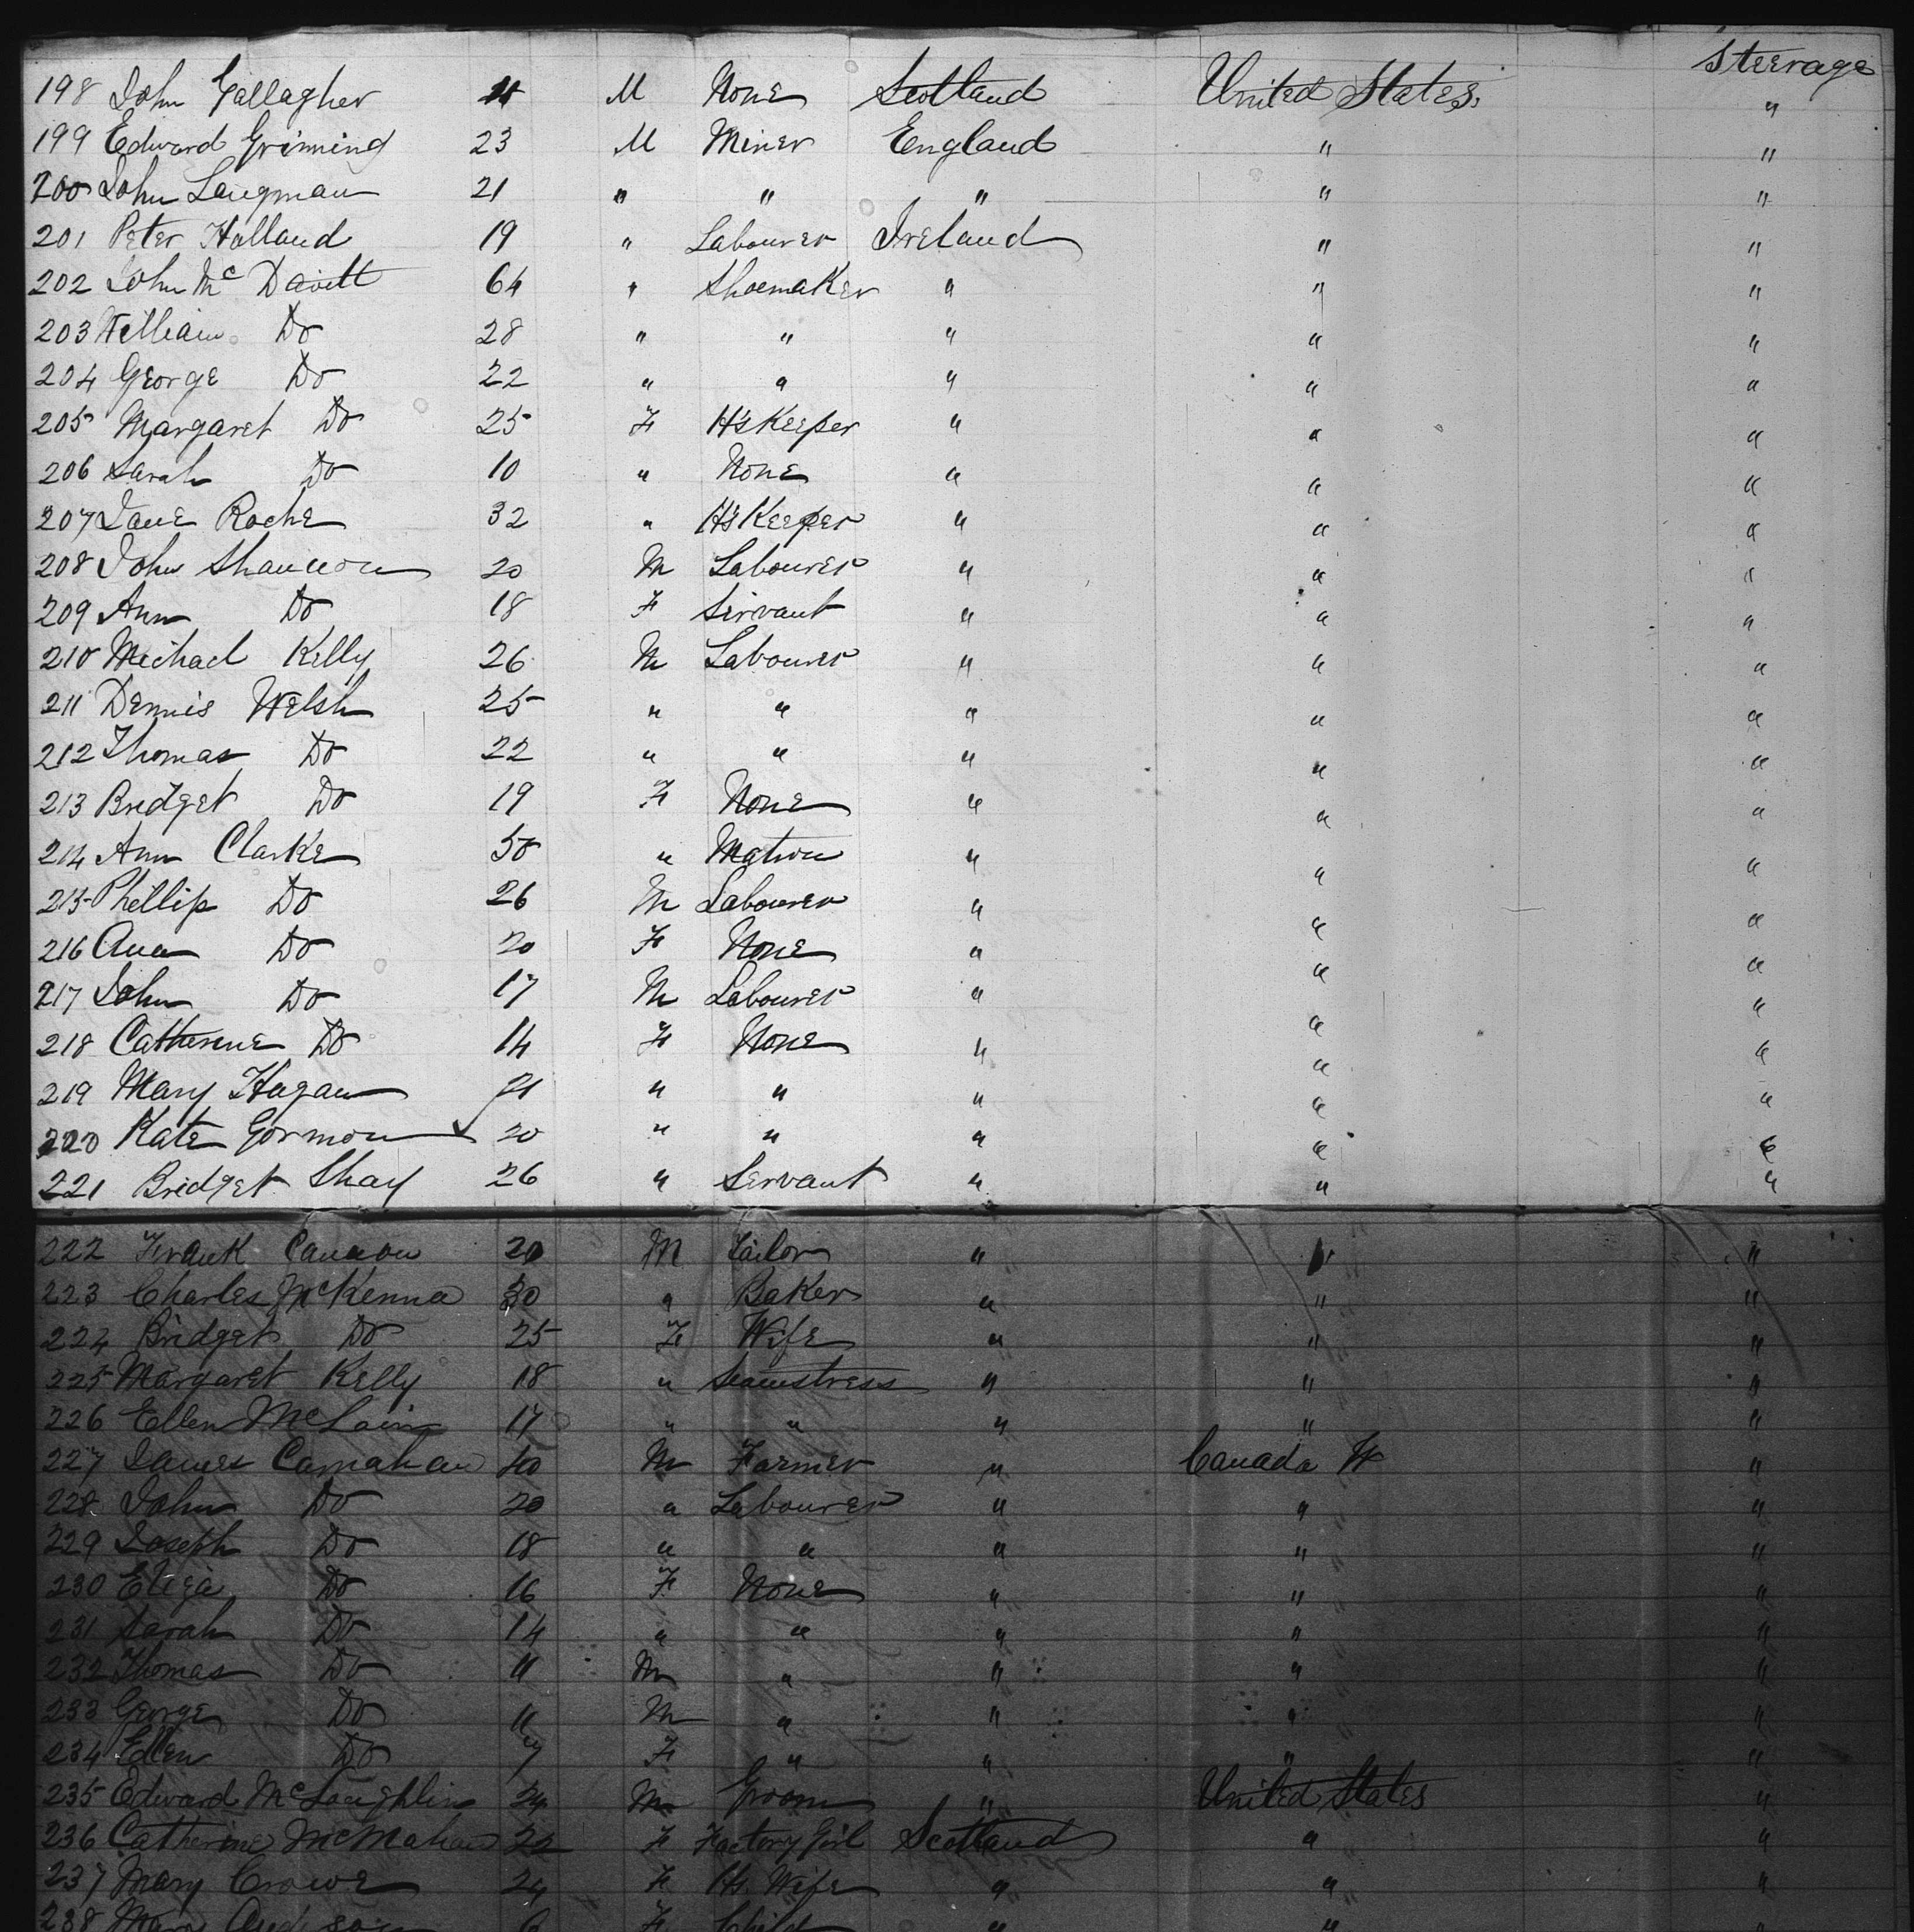 Steerage
198 John Gallagher 11 M None Scotland United States "
199 Edward Grinning 23 M Miner England " "
200 John Langman 21 " " " " "
201 Peter Holland 19 " Labourer Ireland " "
202 John Mc Davitt 64 " Shoemaker " " "
203 William Do 28 " " " " "
204 George Do 22 " " " " "
205 Margaret Do 25 F H's Keeper " " "
206 Sarah Do 10 " None " " "
207 Jane Roche 32 " H's Keeper " " "
208 John Shannon 20 M Labourer " " "
209 Ann Do 18 F Servant " " "
210 Michael Kelly 26 M Labourer " " "
211 Dennis Welsh 25 " " " " "
212 Thomas Do 22 " " " " "
213 Bridget Do 19 F None " " "
214 Ann Clarke 50 " Matron " " "
215 Phillip Do 26 M Labourer " " "
216 Ann Do 20 F None " " "
217 John Do 17 M Labourer " " "
218 Catherine Do 14 F None " " "
219 Mary Hagan 21 " " " " "
220 Kate Gormon 20 " " " " "
221 Bridget Shay 26 " Servant " " "
222 Frank Cannon 20 M Tailor " " "
223 Charles McKenna 30 " Baker " " "
224 Bridget Do 25 F Wife " " "
225 Margaret Kelly 18 " Seamstress " " "
226 Ellen McLain 17 " " " " "
227 James Carnahan 40 M Farmer " Canada W "
228 John Do 20 " Labourer " " "
229 Joseph Do 18 " " " " "
230 Eliza Do 16 F None " " "
231 Sarah Do 14 " " " " "
232 Thomas Do 11 M " " " "
233 George Do 11 M " " " "
234 Ellen Do 7 F " " " "
235 Edward McLoughlin 24 M Groom " United States "
236 Catherine McMahan 22 F Factory Girl Scotland " "
237 Mary Crowe 24 F Hs. Wife " " "
238 Mary Anderson 6 F Child " "